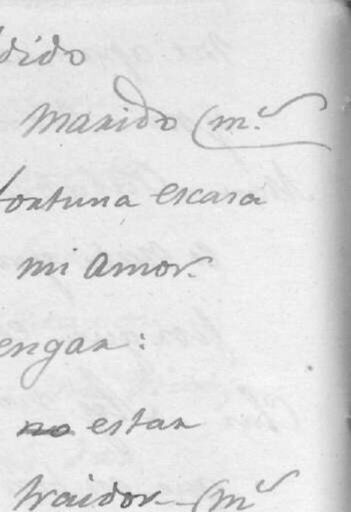 dido
marido (m.^s
fortuna escasa
mi amor.
engan:
no estan
traidor (m^s